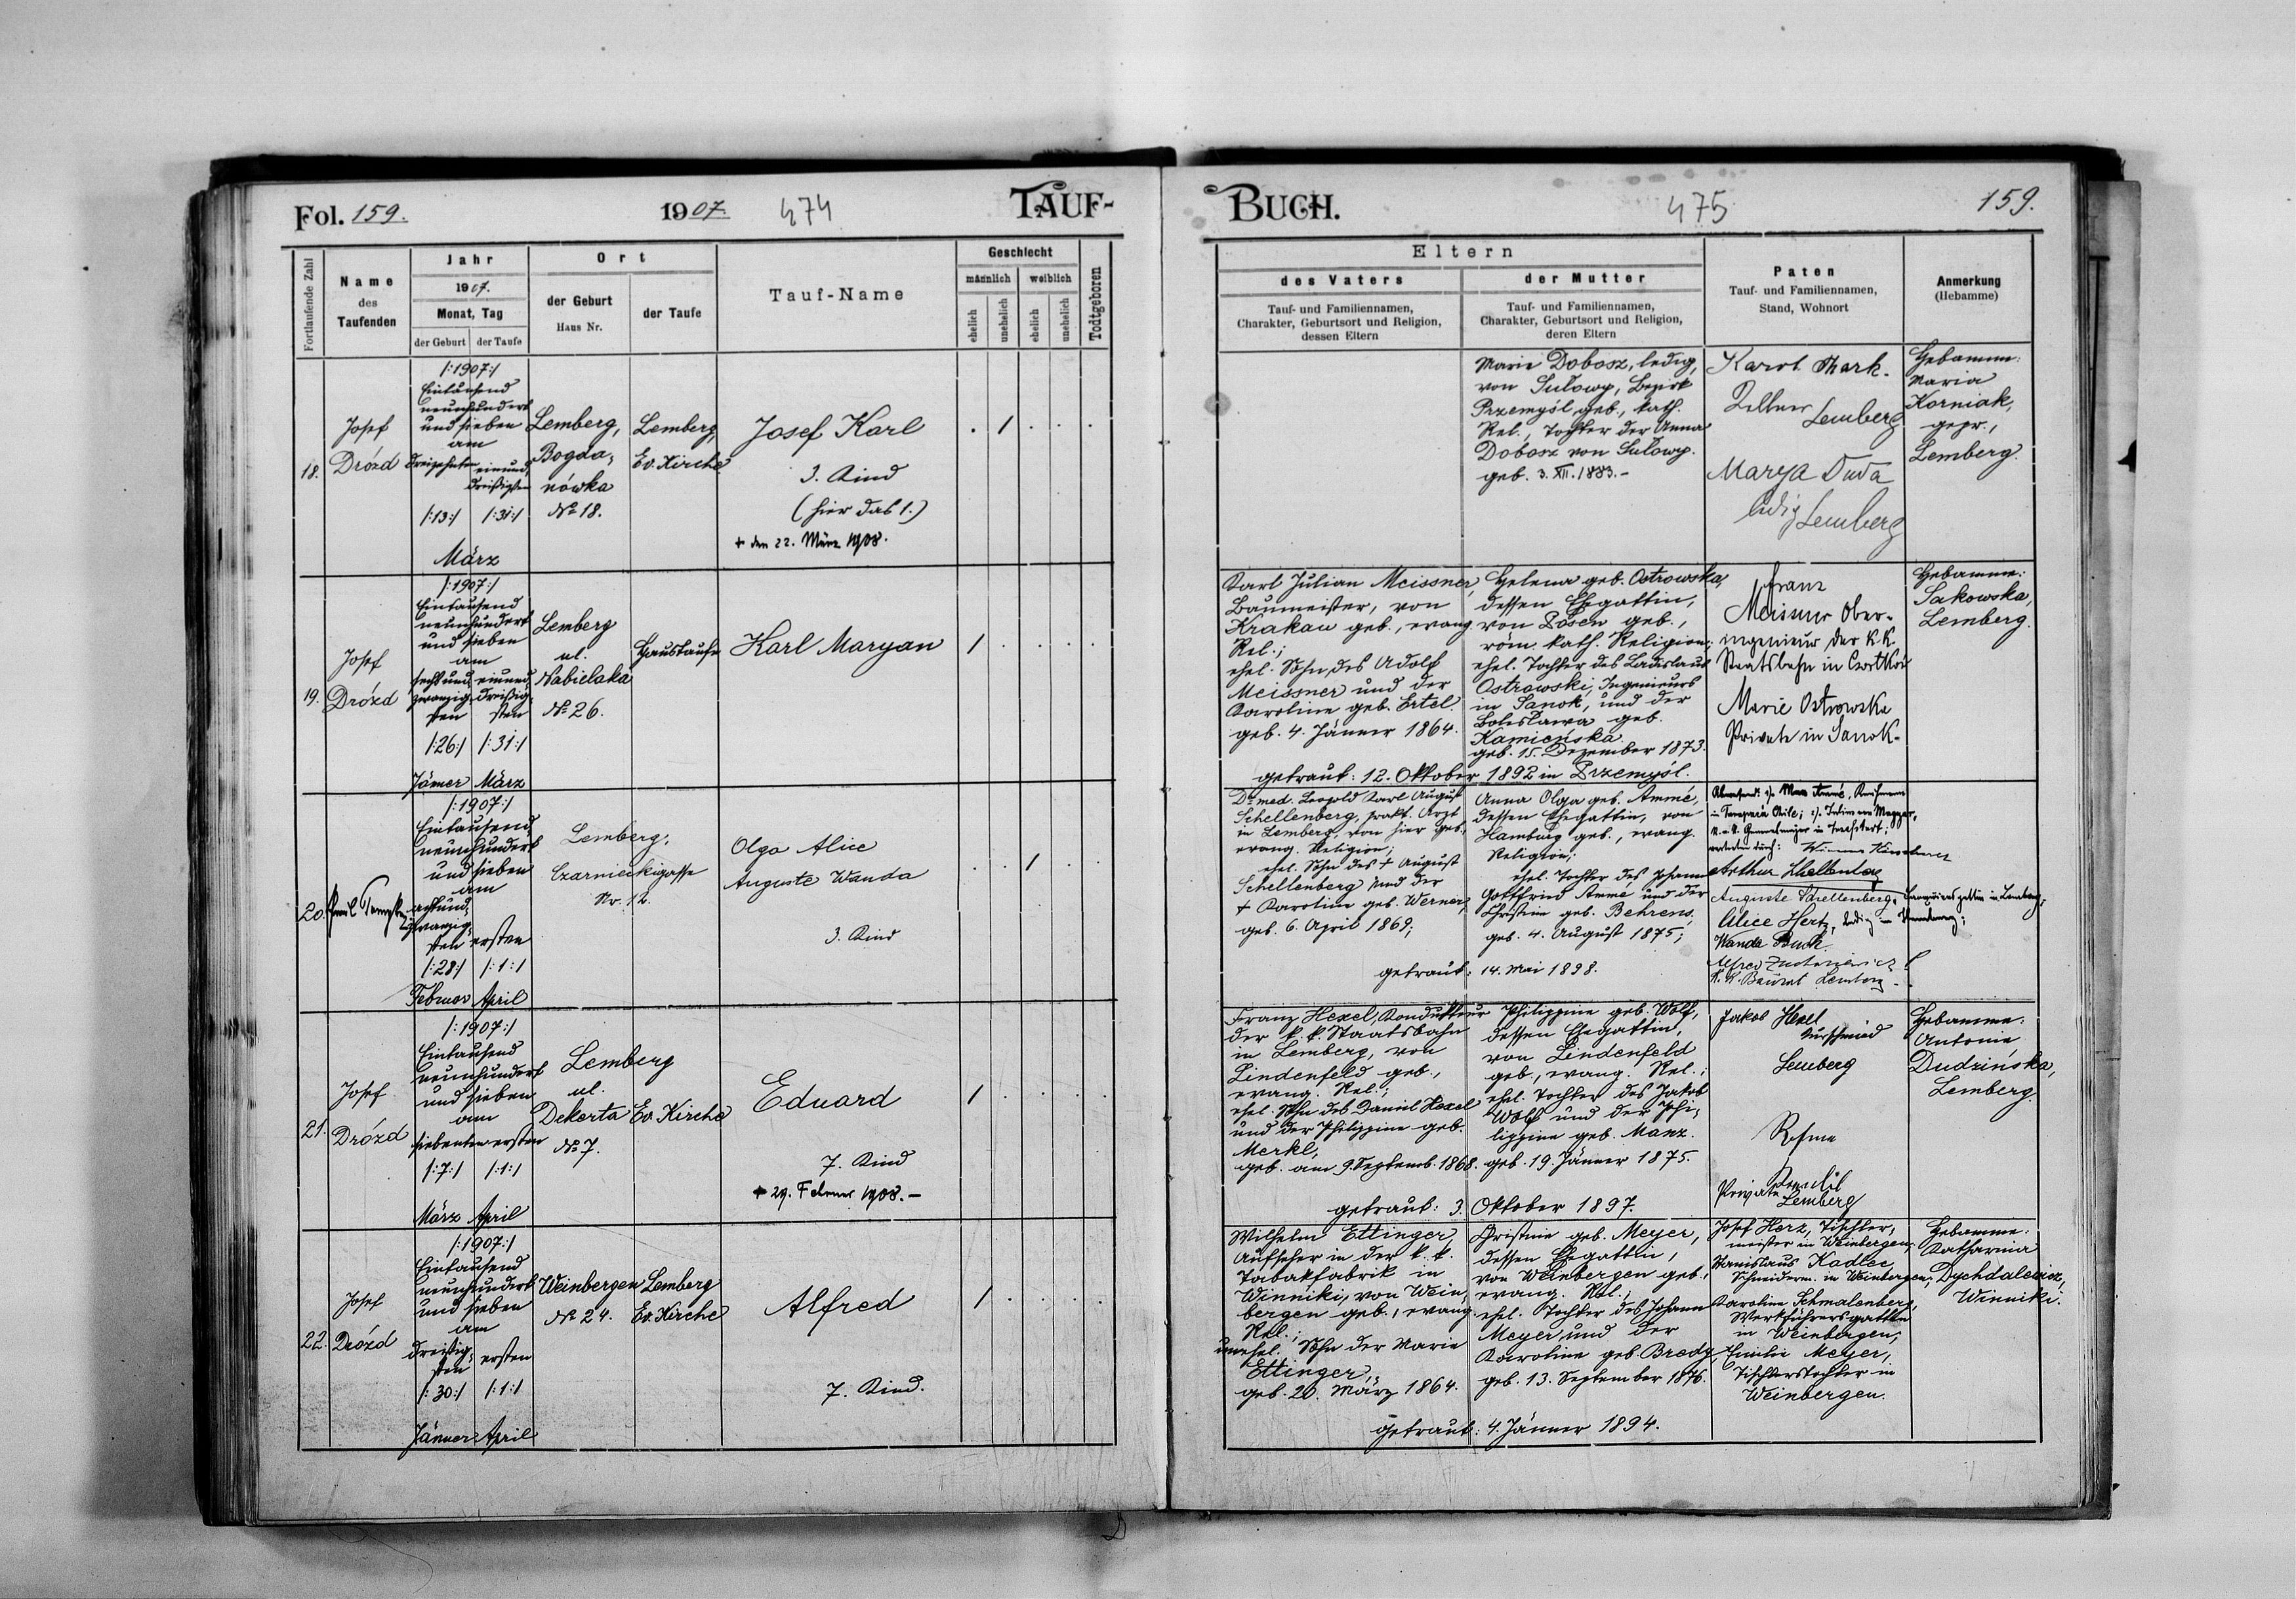 Fol. 159.
1907.
474
TAUF-
Fortlaufende Zahl
Name
des
Taufenden
Jahr
1907.
Monat, Tag
der Geburt
der Taufe
Ort
der Geburt
Haus Nr.
der Taufe
Tauf-Name
Geschlecht
männlich
weiblich
ehelich
unehelich
ehelich
unehelich
Todtgeboren
18.
Josef
Drózd
/:1907:/
Eintausend
neunhundert
und sieben
am
dreizehnten
einund
dreißigsten
/:13:/
/:31:/
März
Lemberg,
Bogda-
nówka
No 18.
Lemberg,
Ev. Kirche
Josef Karl
3. Kind
(hier das 1.)
+ den 22. März 1908.
. 1 . . .
19.
Josef
Drózd
/:1907:/
Eintausend
neunhundert
und sieben
am
sechsund
zwanzig
sten
einund
dreißig
sten
/:26:/
/:31:/
Jänner
März
Lemberg
ul.
Nabielaka
No 26.
Haustaufe
Karl Maryan
1 . . . .
20.
Emil
/:1907:/
Eintausend
neunhundert
und sieben
am
achtund
zwanzig
sten
ersten
/:28:/
/:1:/
Februar
April
Lemberg,
Czarnieckigasse
Nr. 12.
Olga Alice
Auguste Wanda
3. Kind
. . 1 . .
21.
Josef
Drózd
/:1907:/
Eintausend
neunhundert
und sieben
am
siebenten
ersten
/:7:/
/:1:/
März
April
Lemberg
ul.
Dekerta
No 7.
Ev. Kirche
Eduard
7. Kind
+ 29. Februar 1908.-
1 . . . .
22.
Josef
Drózd
/:1907:/
Eintausend
neunhundert
und sieben
am
dreißig
sten
ersten
/:30:/
/:1:/
Jänner
April
Weinbergen
No 24.
Lemberg
Ev. Kirche
Alfred
7. Kind.
1 . . . .
BUCH.
475
159.
Eltern
des Vaters
Tauf- und Familiennamen,
Charakter, Geburtsort und Religion,
dessen Eltern
der Mutter
Tauf- und Familiennamen,
Charakter, Geburtsort und Religion,
deren Eltern
Paten
Tauf- und Familiennamen,
Stand, Wohnort
Anmerkung
(Hebamme)
Marie Dobosz, ledig,
von Sułowy, Bezirk
Przemyśl geb., kath.
Rel., Tochter der Anna
Dobosz von Sułowy.
geb. 3. XII. 1883.-
Karol Mark.
Lemberg
Marya Duda
ledig Lemberg
Hebamme:
Maria
Korniak,
gepr.,
Lemberg.
Karl Julian Meissner,
Baumeister, von
Krakau geb., evang.
Rel.;
ehel. Sohn des Adolf
Meissner und der
Karoline geb. Ertel.
geb. 4. Jänner 1864.
Helena geb. Ostrowska,
dessen Ehegattin,
von Posen geb.,
röm. kath. Religion;
ehel. Tochter des Ladislaus
Ostrowski, Ingenieurs
in Sanok, und der
Bolesława geb.
Kamieńska
geb. 15. Dezember 1873.
getraut: 12. Oktober 1892 in Przemyśl.
Franz
Meissner Ober-
ingenieur der k.k.
Staatsbahn in Czortków
Marie Ostrowska
Private in Sanok.
Hebamme:
Sakowska,
Lemberg.
Dr med. Leopold Karl August
Schellenberg, prakt. Arzt
in Lemberg, von hier geb.,
evang. Religion;
ehel. Sohn des + August
Schellenberg und der
+ Karoline geb. Werner,
geb. 6. April 1869;
Anna Olga geb. Ammé,
dessen Ehegattin, von
Hamburg geb., evang.
Religion;
ehel. Tochter des Johann
Gottfried Ammé und der
Christine geb. Behrens,
geb. 4. August 1875;
getraut: 14. Mai 1898.
vertreten durch:
Arthur Schellenberg
Auguste Schellenberg,
Alice Hertz, ledig in Hamburg;
Wanda Buck.
k. k. Baurat Lemberg.
Franz Hexel, Kondukteur
der k.k. Staatsbahn
in Lemberg, von
Lindenfeld geb.,
evang. Rel.;
ehel. Sohn des Daniel Hexel
und der Philippine geb.
Merkl,
geb. am 9. Septemb. 1868.
Philippine geb. Wolf,
dessen Ehegattin,
von Lindenfeld
geb., evang. Rel.;
ehel. Tochter des Jakob
Wolf und der Phi-
lippine geb. Manz.
geb. 19. Jänner 1875.
getraut: 3. Oktober 1897.
Jakob Hexel
Lemberg
Private
Lemberg
Hebamme:
Antonie
Dudzińska,
Lemberg.
Wilhelm Ettinger,
Aufseher in der k. k.
Tabakfabrik in
Winniki, von Wein-
bergen geb., evang.
Rel.;
unehel. Sohn der Marie
Ettinger,
geb. 20. März 1864.
Christine geb. Meyer,
dessen Ehegattin,
von Weinbergen geb.,
evang. Rel.;
ehel. Tochter des Johann
Meyer und der
Karoline geb. Bredy,
geb. 13. September 1876.
getraut: 4. Jänner 1894.
Josef Herz, Tischler-
meister in Weinbergen;
Stanislaus Kadlec
Schneiderm. in Weinbergen;
Karoline Schmalenberg,
Werkführersgattin
in Weinbergen;
Emilie Meyer,
Tischlerstochter in
Weinbergen.
Hebamme:
Katharina
Dychdalewicz,
Winniki.